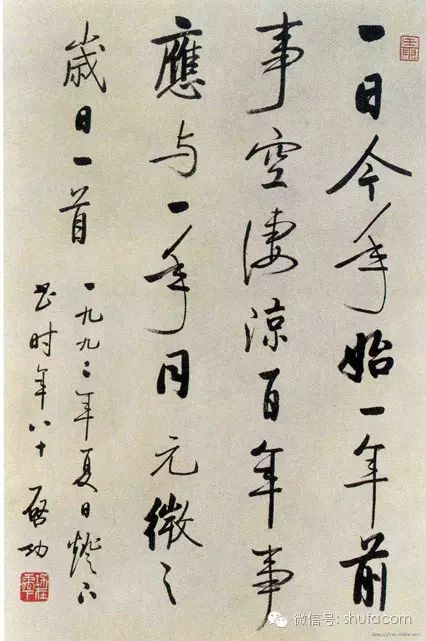 一日今年始一年前
事空淒涼百年事
應与一年同元微之
歲日一首
一九九二年夏日燈下
书时年八十 啓功
微信号: shufacom